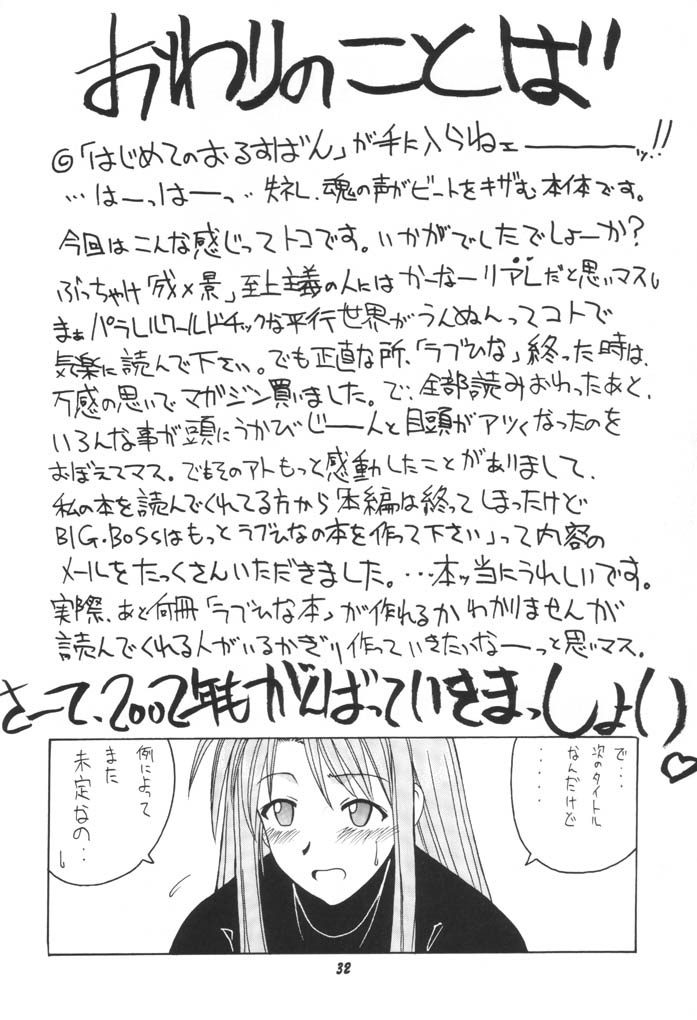 おわりのことば
◎「はじめてのおるすばん」が手に入らねェ────ッ!!
…はーっはーっ‥失ネし、魂の声がビートをキザむ本体です。
今回はこんな感じってトコです。いかがでしたでしょーか?
ぶっちゃけ「成×景」至上主義の人にはかーなーリアレだと思いマスし
まぁパラレルワールドチックな平行世界がうんぬんってコトで
気楽に読んで下さい。でも正直な所、「ラブひな」終った時は、
万感の思いでマガジン買いました。で、全部読みおわったあと、
いろんな事が頭にうかびじーーんと目頭がアツくなったのを
おぼえてマス。でもそのアトもっと感動したことがありまして、
私の本を読んでくれてる方から「本編は終ってしまったけど
BIG・BOSSはもっとラブひなの本を作って下さい」って内容の
メールをたっくさんいただきました。…本ッ当にうれしいです。
実際、あと何冊「ラブひな本」が作れるかわかりませんが
読んでくれる人がいるかぎり作っていきたいなーっと思いマス。
さーて、2002年もがんばっていきまっしょい♡
で‥‥
次のタイトル
なんだけど
‥‥‥
例によって
また
未定なの‥
32